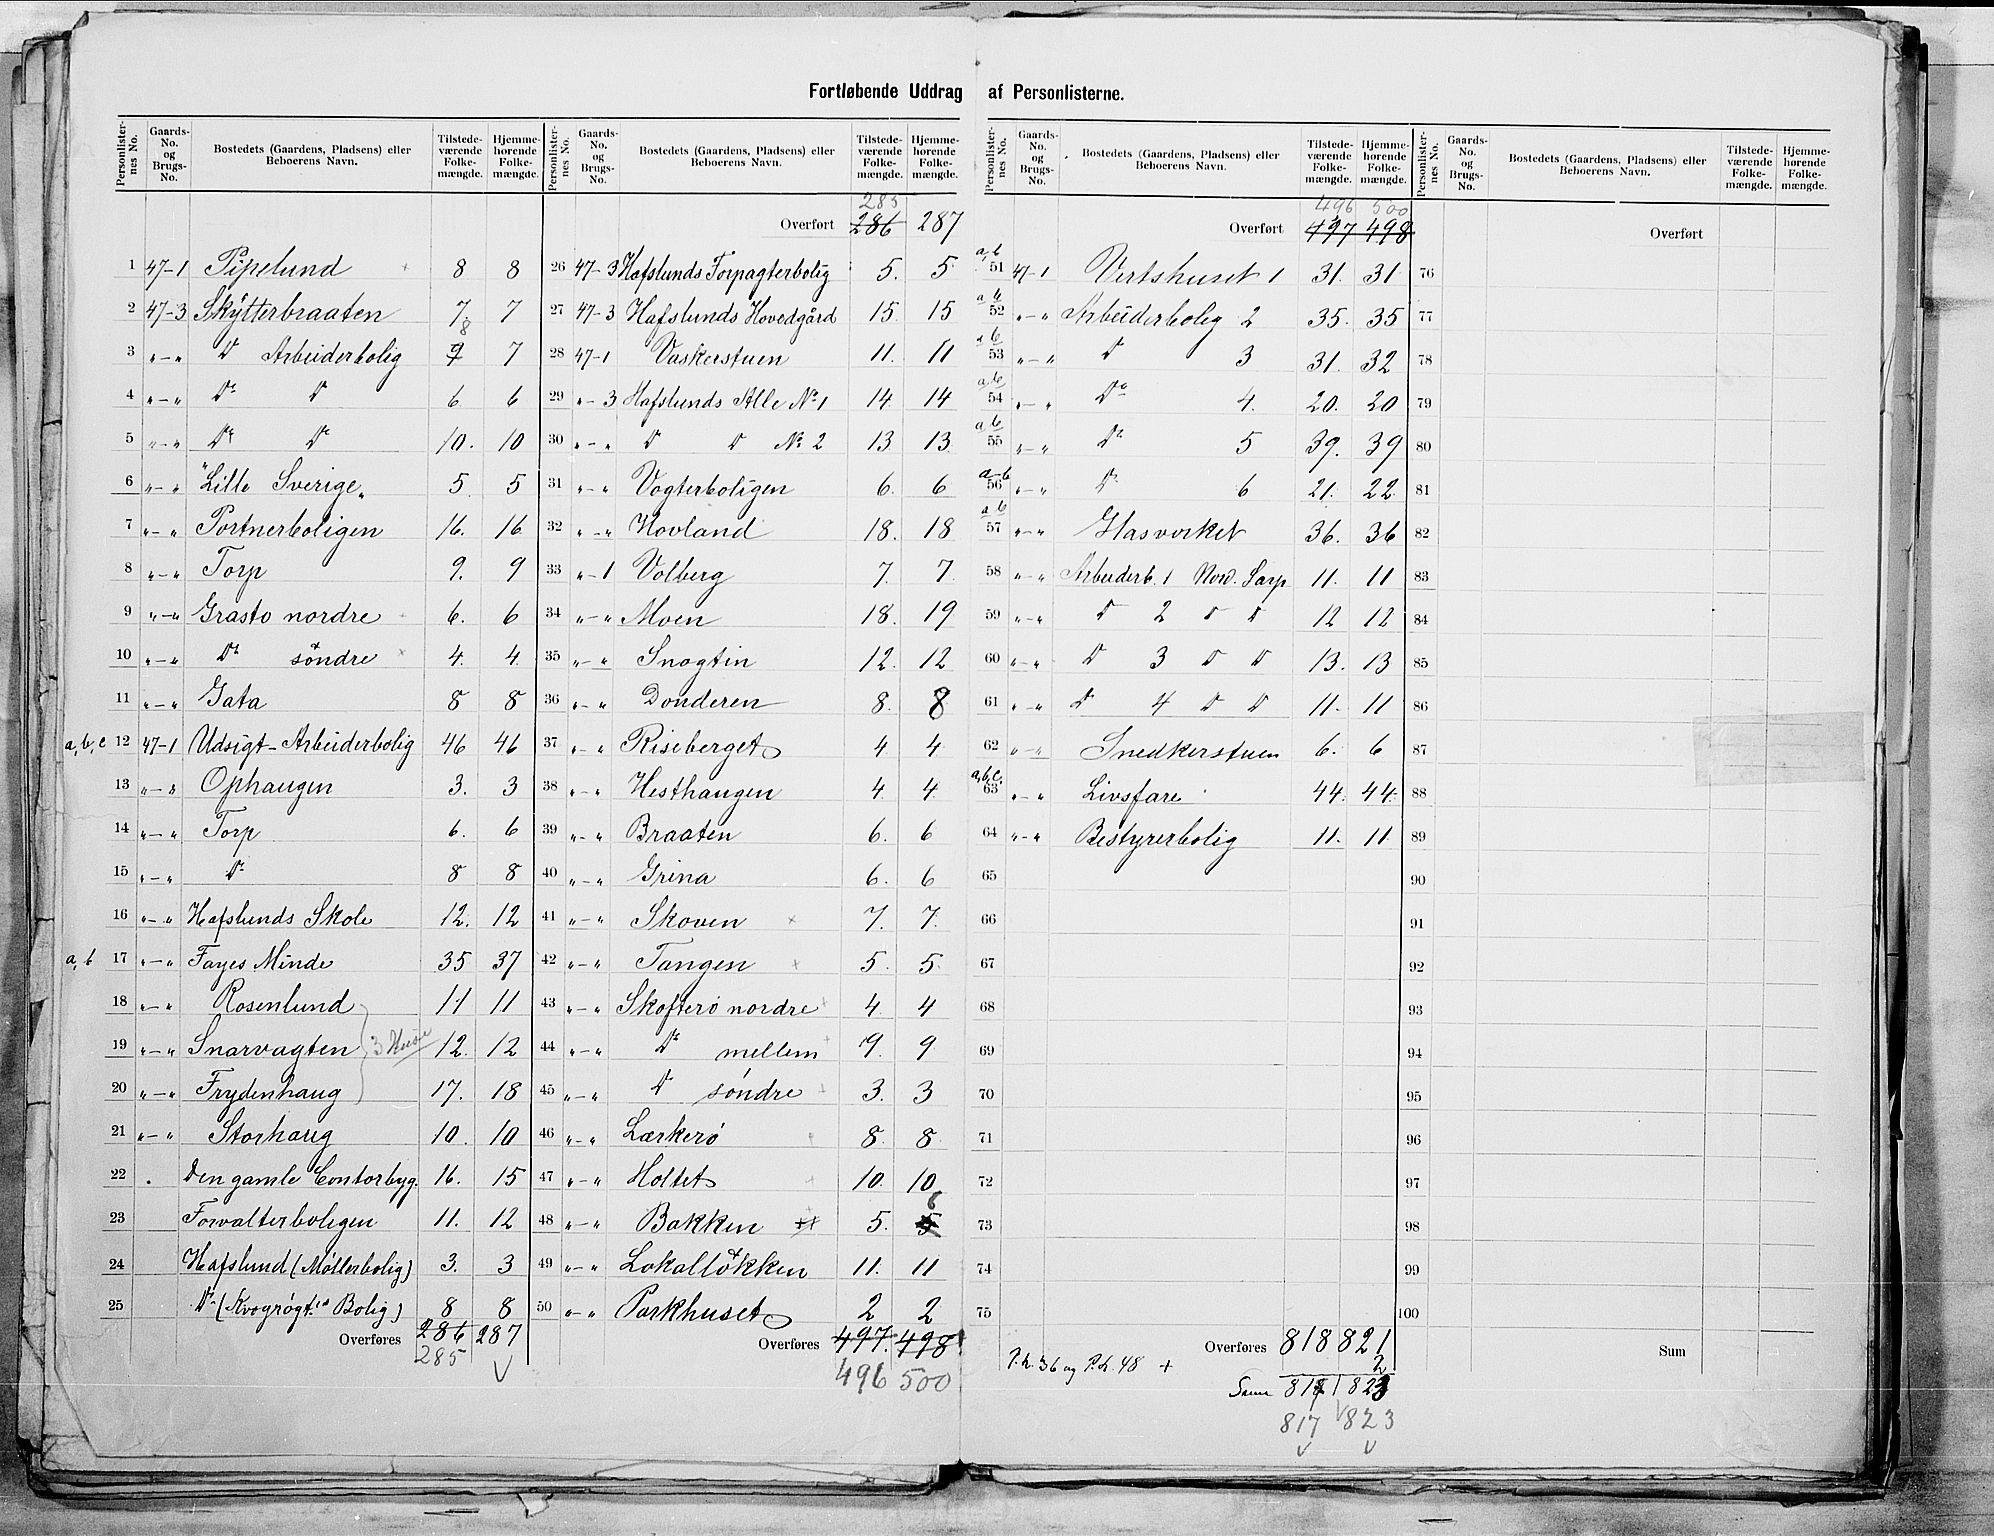 Fortløbende Uddrag af Personlisterne.
Personlister-nes No. | Gaards-No. og Brugs-No. | Bostedets (Gaardens, Pladsens) eller Beboerens Navn. | Tilstede-værende Folke-mængde. | Hjemme-hørende Folke-mængde.
1 47-1 Pipelund + 8 8
2 47-3 Skÿtterbraaten 7. 7
3 „-„ D Arbeiderbolig 8 9 7
4 „-„ Do D 6 6
5 „-„ Do Do 10. 10
6 „-„ "Lille Sverige„ 5 5
7 „-„ Portnerboligen 16. 16
8 „-„ Torp 9. 9
9 „-„ Grasto nordre + 6. 6
10 „-„ Do söndre × 4. 4
11 „-„ Gata 8 8
a, b, c 12 47-1 Udsigt-Arbeiderbolig 46 46
13 „-„ Ophaugen 3. 3
14 „-„ Torp 6. 6
15 „-„ Do 8 8
16 „-„ Hafslunds Skole 12. 12
a, b 17 „-„ Fayes Minde 35 37
18 „-„ Rosenlund 11 11
19 „-„ Snarvagten 3 Huse 12. 12
20 „-„ Frydenhaug 17. 18
21 „-„ Storhaug 10. 10
22 . Den gamle Contorbyg. 16. 15
23 Forvalterboligen 11. 12
24 Hafslund (Møllerbolig) 3. 3
25 Do (Kvøgrøgt. Bolig) 8 8
Overføres 286 287
285 V
Personlister-nes No. | Gaards-No. og Brugs-No. | Bostedets (Gaardens, Pladsens) eller Beboerens Navn. | Tilstede-værende Folke-mængde. | Hjemme-hørende Folke-mængde.
285
Overført 286 287
26 47-3 Hafslunds Forpagterbolig 5. 5
27 47-3 Hafslunds Hovedgård 15. 15
28 47-1 Vaskerstuen 11. 11
29 „-3 Hafslunds Alle No 1 14 14
30 „-„ D D No 2 13 13
31 „-„ Vogterboligen 6. 6
32 „-„ Hovland 18. 18
33 „-1 Volberg 7. 7
34 „-„ Moen 18. 19
35 „-„ Snogtin 12. 12
36 „-„ Donderen 8. 8
37 „-„ Riseberget 4 4
38 „-„ Hesthaugen 4. 4
39 „-„ Braaten 6. 6
40 „-„ Grina 6. 6
41 „-„ Skoven × 7. 7.
42 „-„ Tangen + 5. 5
43 „-„ Skofterø nordre + 4 4
44 „-„ Do mellem + 9. 9
45 „-„ Do söndre + 3. 3
46 „-„ Lærkerö + 8. 8
47 „-„ Holtet + 10. 10
48 „-„ Bakken ++ 5. 5 6
49 „-„ Lokalløkken 11. 11
50 „-„ Parkhuset 2 2
Overføres 497. 498
496 500
Personlister-nes No. | Gaards-No. og Brugs-No. | Bostedets (Gaardens, Pladsens) eller Beboerens Navn. | Tilstede-værende Folke-mængde. | Hjemme-hørende Folke-mængde.
496 500
Overført 497 498
a, b 51 47-1 Vertshuset 1 31. 31
a b 52 „-„ Arbeiderbolig 2 35. 35
a b 53 „-„ D 3 31. 32
a, b 54 „-„ Do 4. 20. 20
a b 55 „-„ Do 5 39. 39
a, b 56 „-„ Do 6 21. 22
a b 57 „-„ Glasverket 36. 36
58 „-„ Arbeiderb. 1 Nord. Sarp 11. 11
59 „-„ D 2 D D 12 12
60 „-„ D 3 D D 13. 13
61 „-„ D 4 D D 11. 11
62 „-„ Snedkerstuen 6. 6
a, b, c. 63 „-„ Livsfare 44. 44
64 „-„ Bestyrerbolig 11. 11
65
66
67
68
69
70
71
72
73
74
75
Overføres 818 821
P.L. 36 og P.L. 48 + 2
Sum 817 823
817 V 823
V V
Personlister-nes No. | Gaards-No. og Brugs-No. | Bostedets (Gaardens, Pladsens) eller Beboerens Navn. | Tilstede-værende Folke-mængde. | Hjemme-hørende Folke-mængde.
Overført
76
77
78
79
80
81
82
83
84
85
86
87
88
89
90
91
92
93
94
95
96
97
98
99
100
Sum